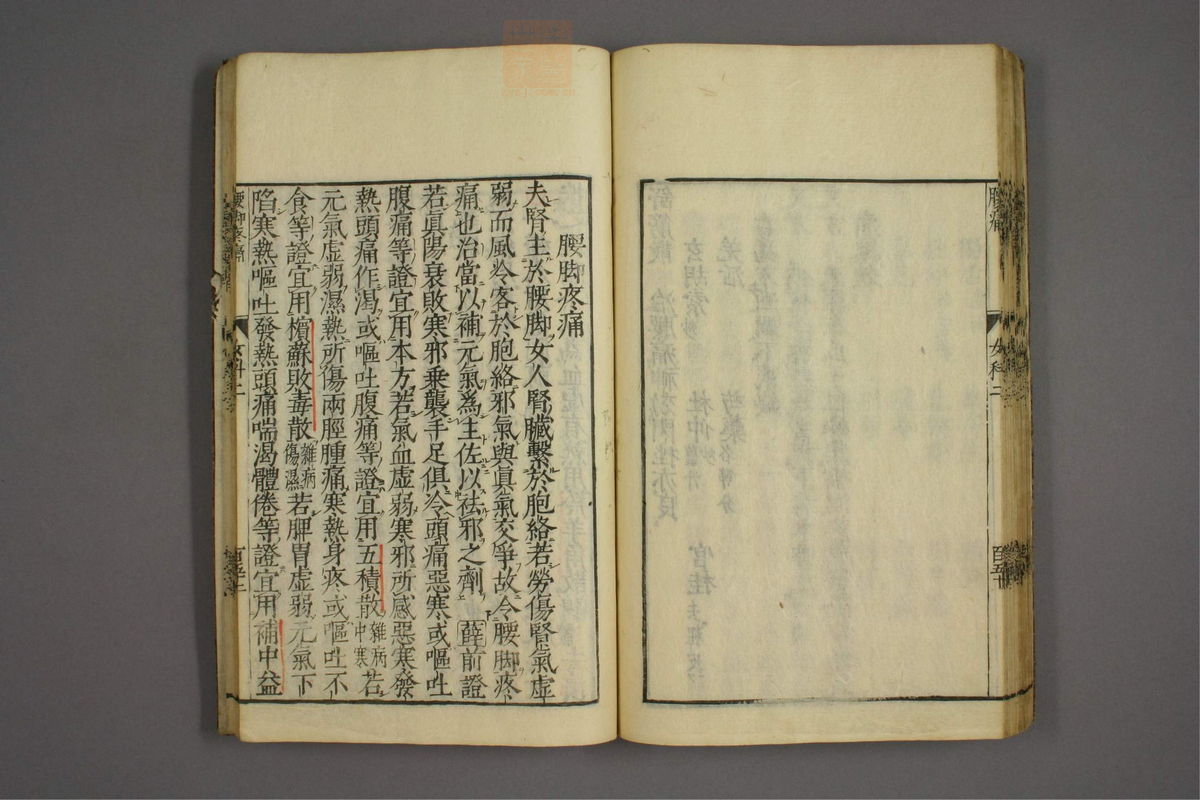 腰痛
女科二
腰脚疼痛
夫腎主於腰脚女人腎臟繫於胞絡若勞傷腎氣虛
弱而風冷客於胞絡邪氣與眞氣交爭故令腰脚疼
痛也治當以補元氣爲主佐以祛邪之劑薛前證
若眞陽衰敗寒邪乘襲手足俱冷頭痛惡寒或嘔吐
腹痛等證宜用本方若氣血虛弱寒邪所感惡寒發
熱頭痛作渴或嘔吐腹痛等證宜用五積散雜病中寒若
元氣虛弱濕熱所傷兩脛腫痛寒熱身疼或嘔吐不
食等證宜用檳蘇敗毒散雜病傷濕若脾胃虛弱元氣下
陷寒熱嘔吐發熱頭痛喘渴體倦等證宜用補中益
腰脚疼痛
女科二